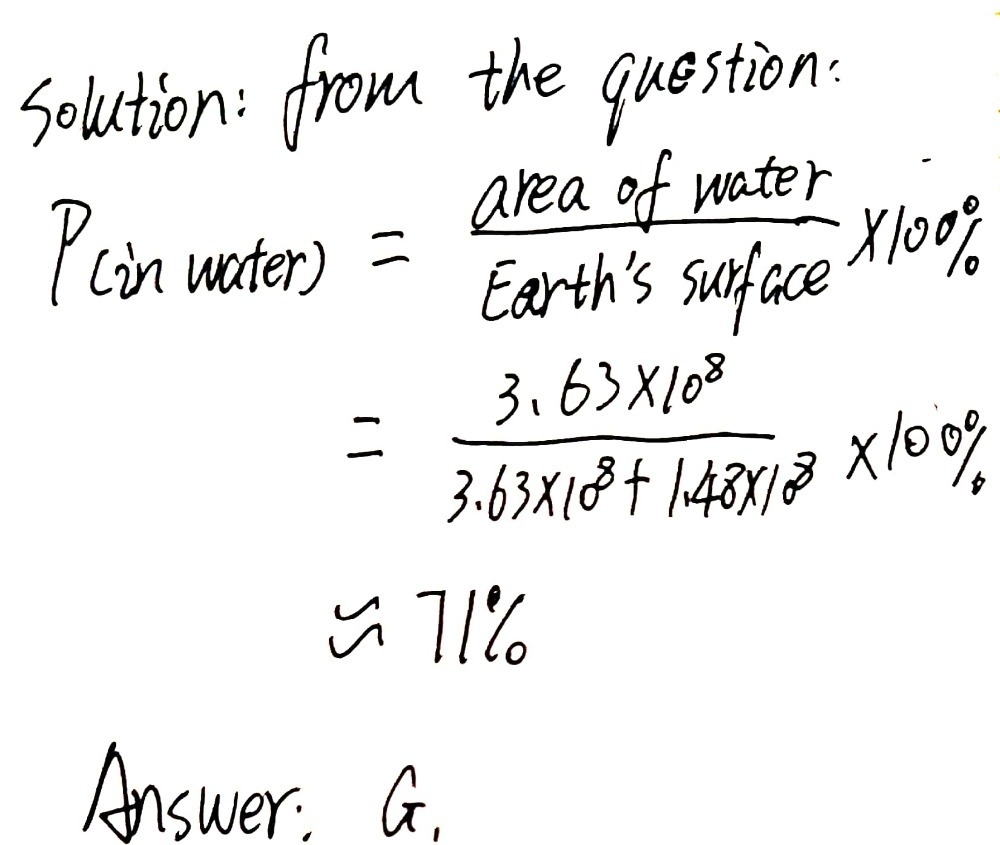 Solution: from the question:
P(in water) = area of water / Earth's surface ×100%
= 3.63×10⁸ / 3.63×10⁸ + 1.48×10⁸ ×100%
≈ 71%
Answer: G.